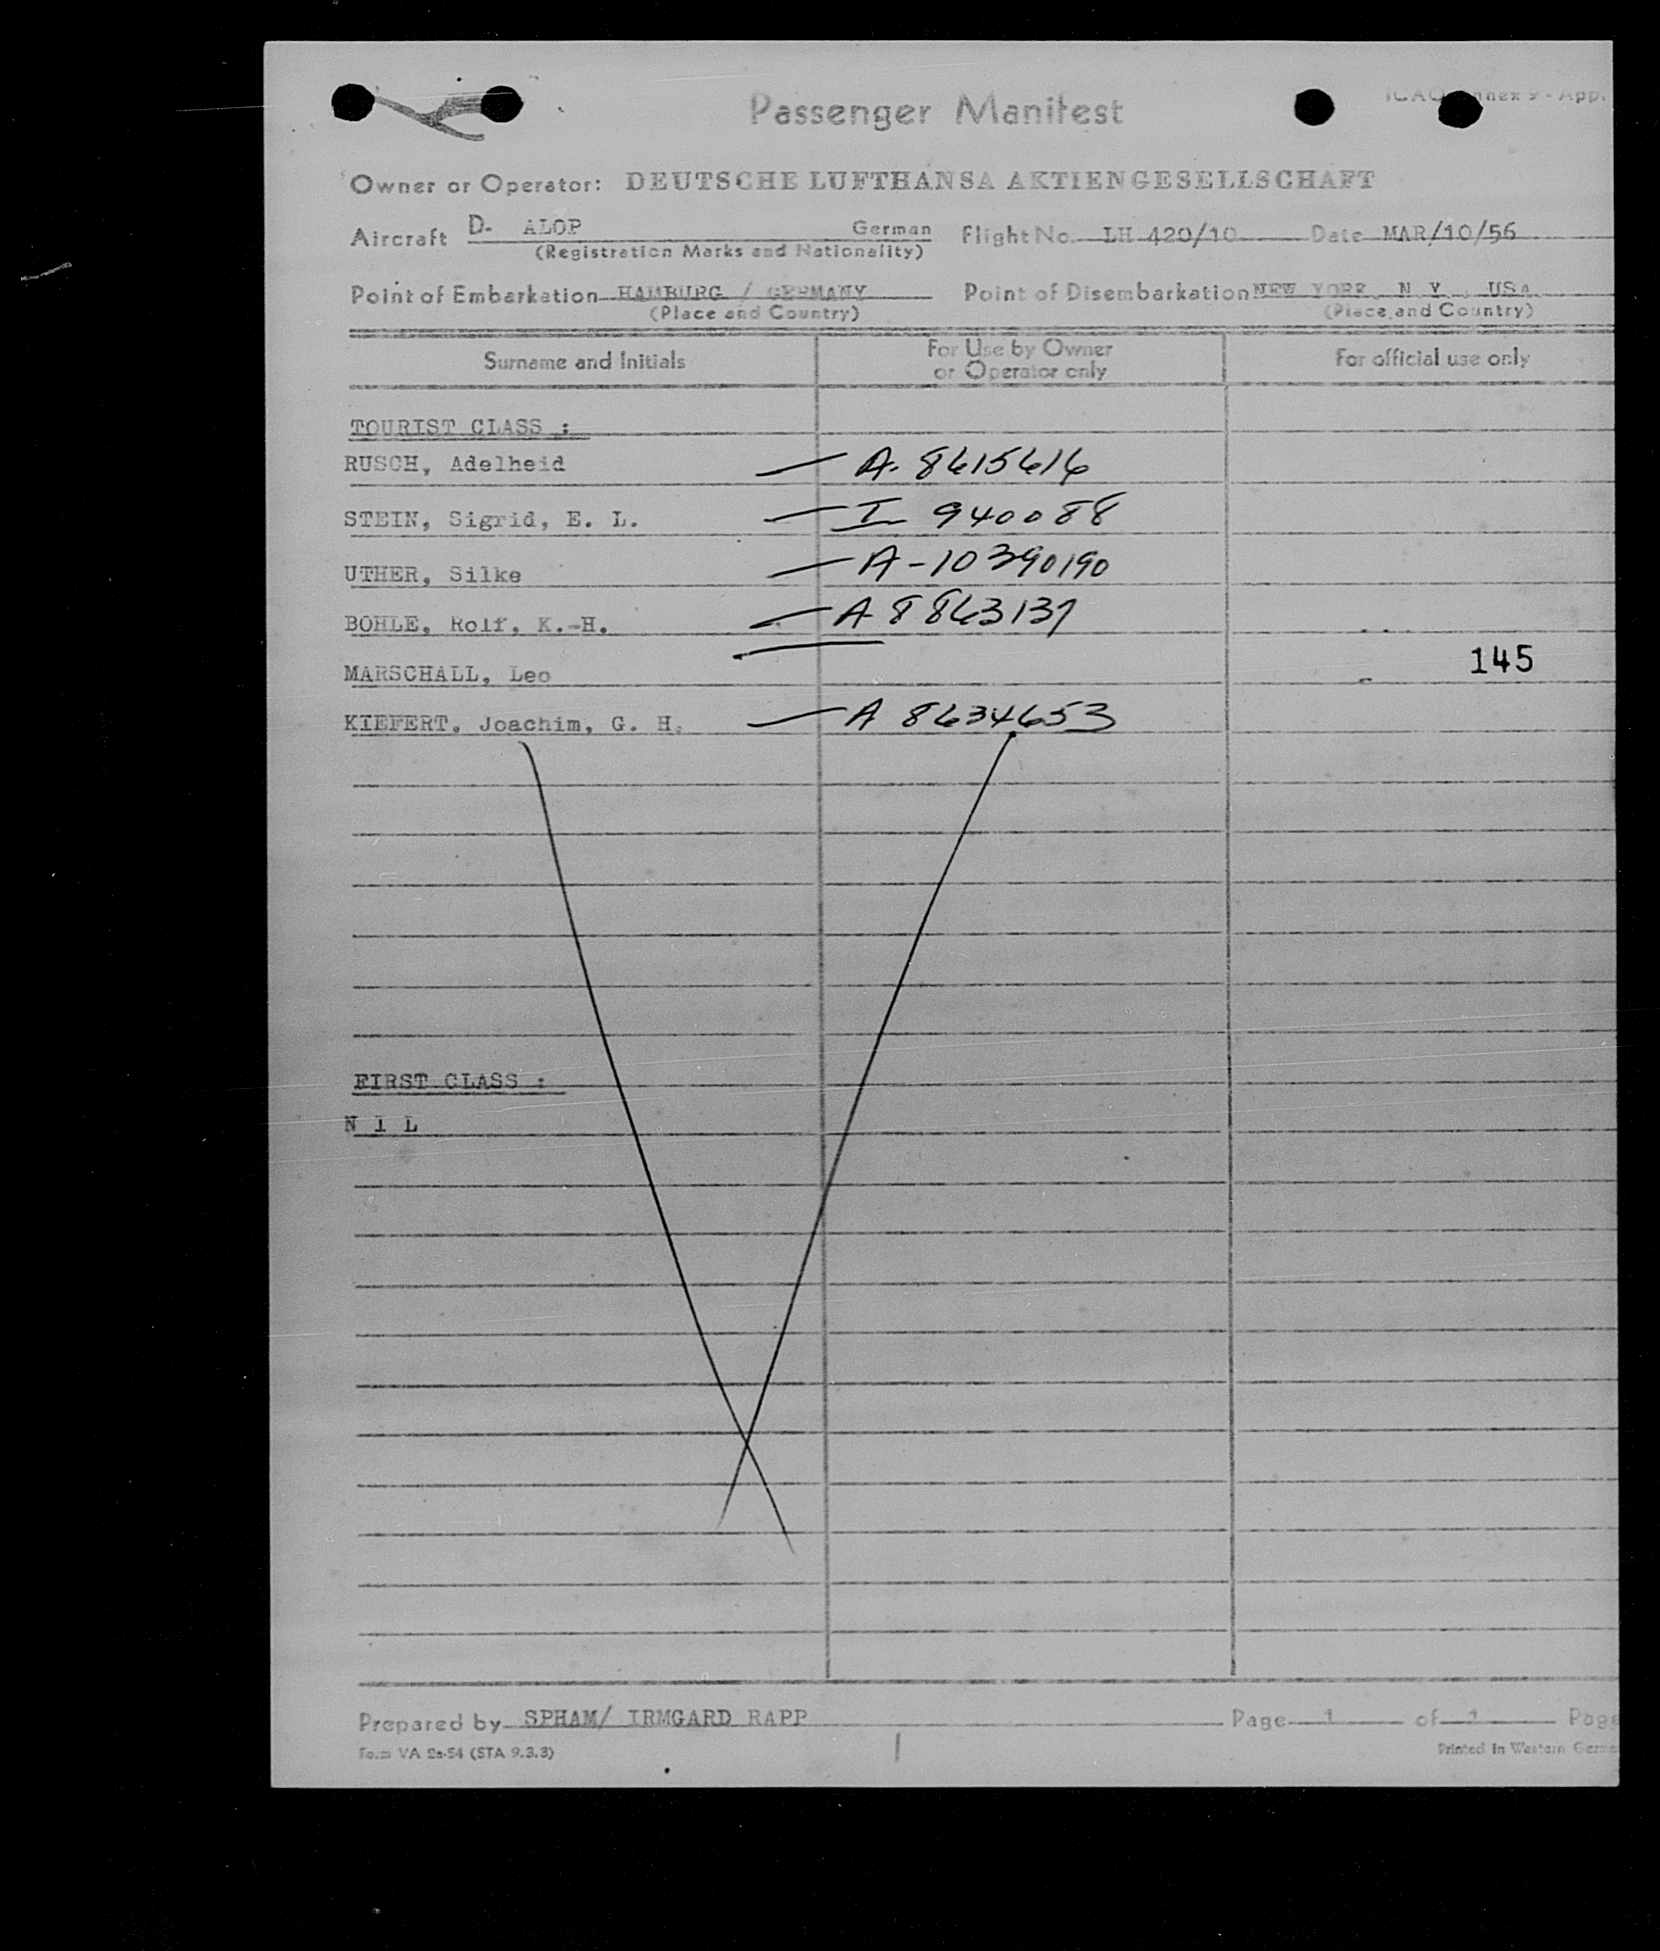 Passenger Manifest
Owner or Operator: DEUTSCHE LUFTHANSA AKTIENGESELLSCHAFT
Aircraft D- ALOP German Flight No. LH 420/10 Date MAR/10/56
(Registration Marks and Nationality)
Point of Embarkation HAMBURG / GERMANY Point of Disembarkation NEW YORK, N Y, USA
(Place and Country) (Place and Country)
Surname and Initials For Use by Owner or Operator only For official use only
TOURIST CLASS :
RUSCH, Adelheid A. 8615616
STEIN, Sigrid, E. L. I 940088
UTHER, Silke A-10390190
BOHLE, Rolf, K.-H. A 8863137
145
MARSCHALL, Leo
KIEFERT, Joachim, G. H. A 8634653
FIRST CLASS :
N I L
Prepared by SPHAM/ IRMGARD RAPP Page 1 of 1
Form VA 2a-54 (STA 9.3.3) Printed in Western